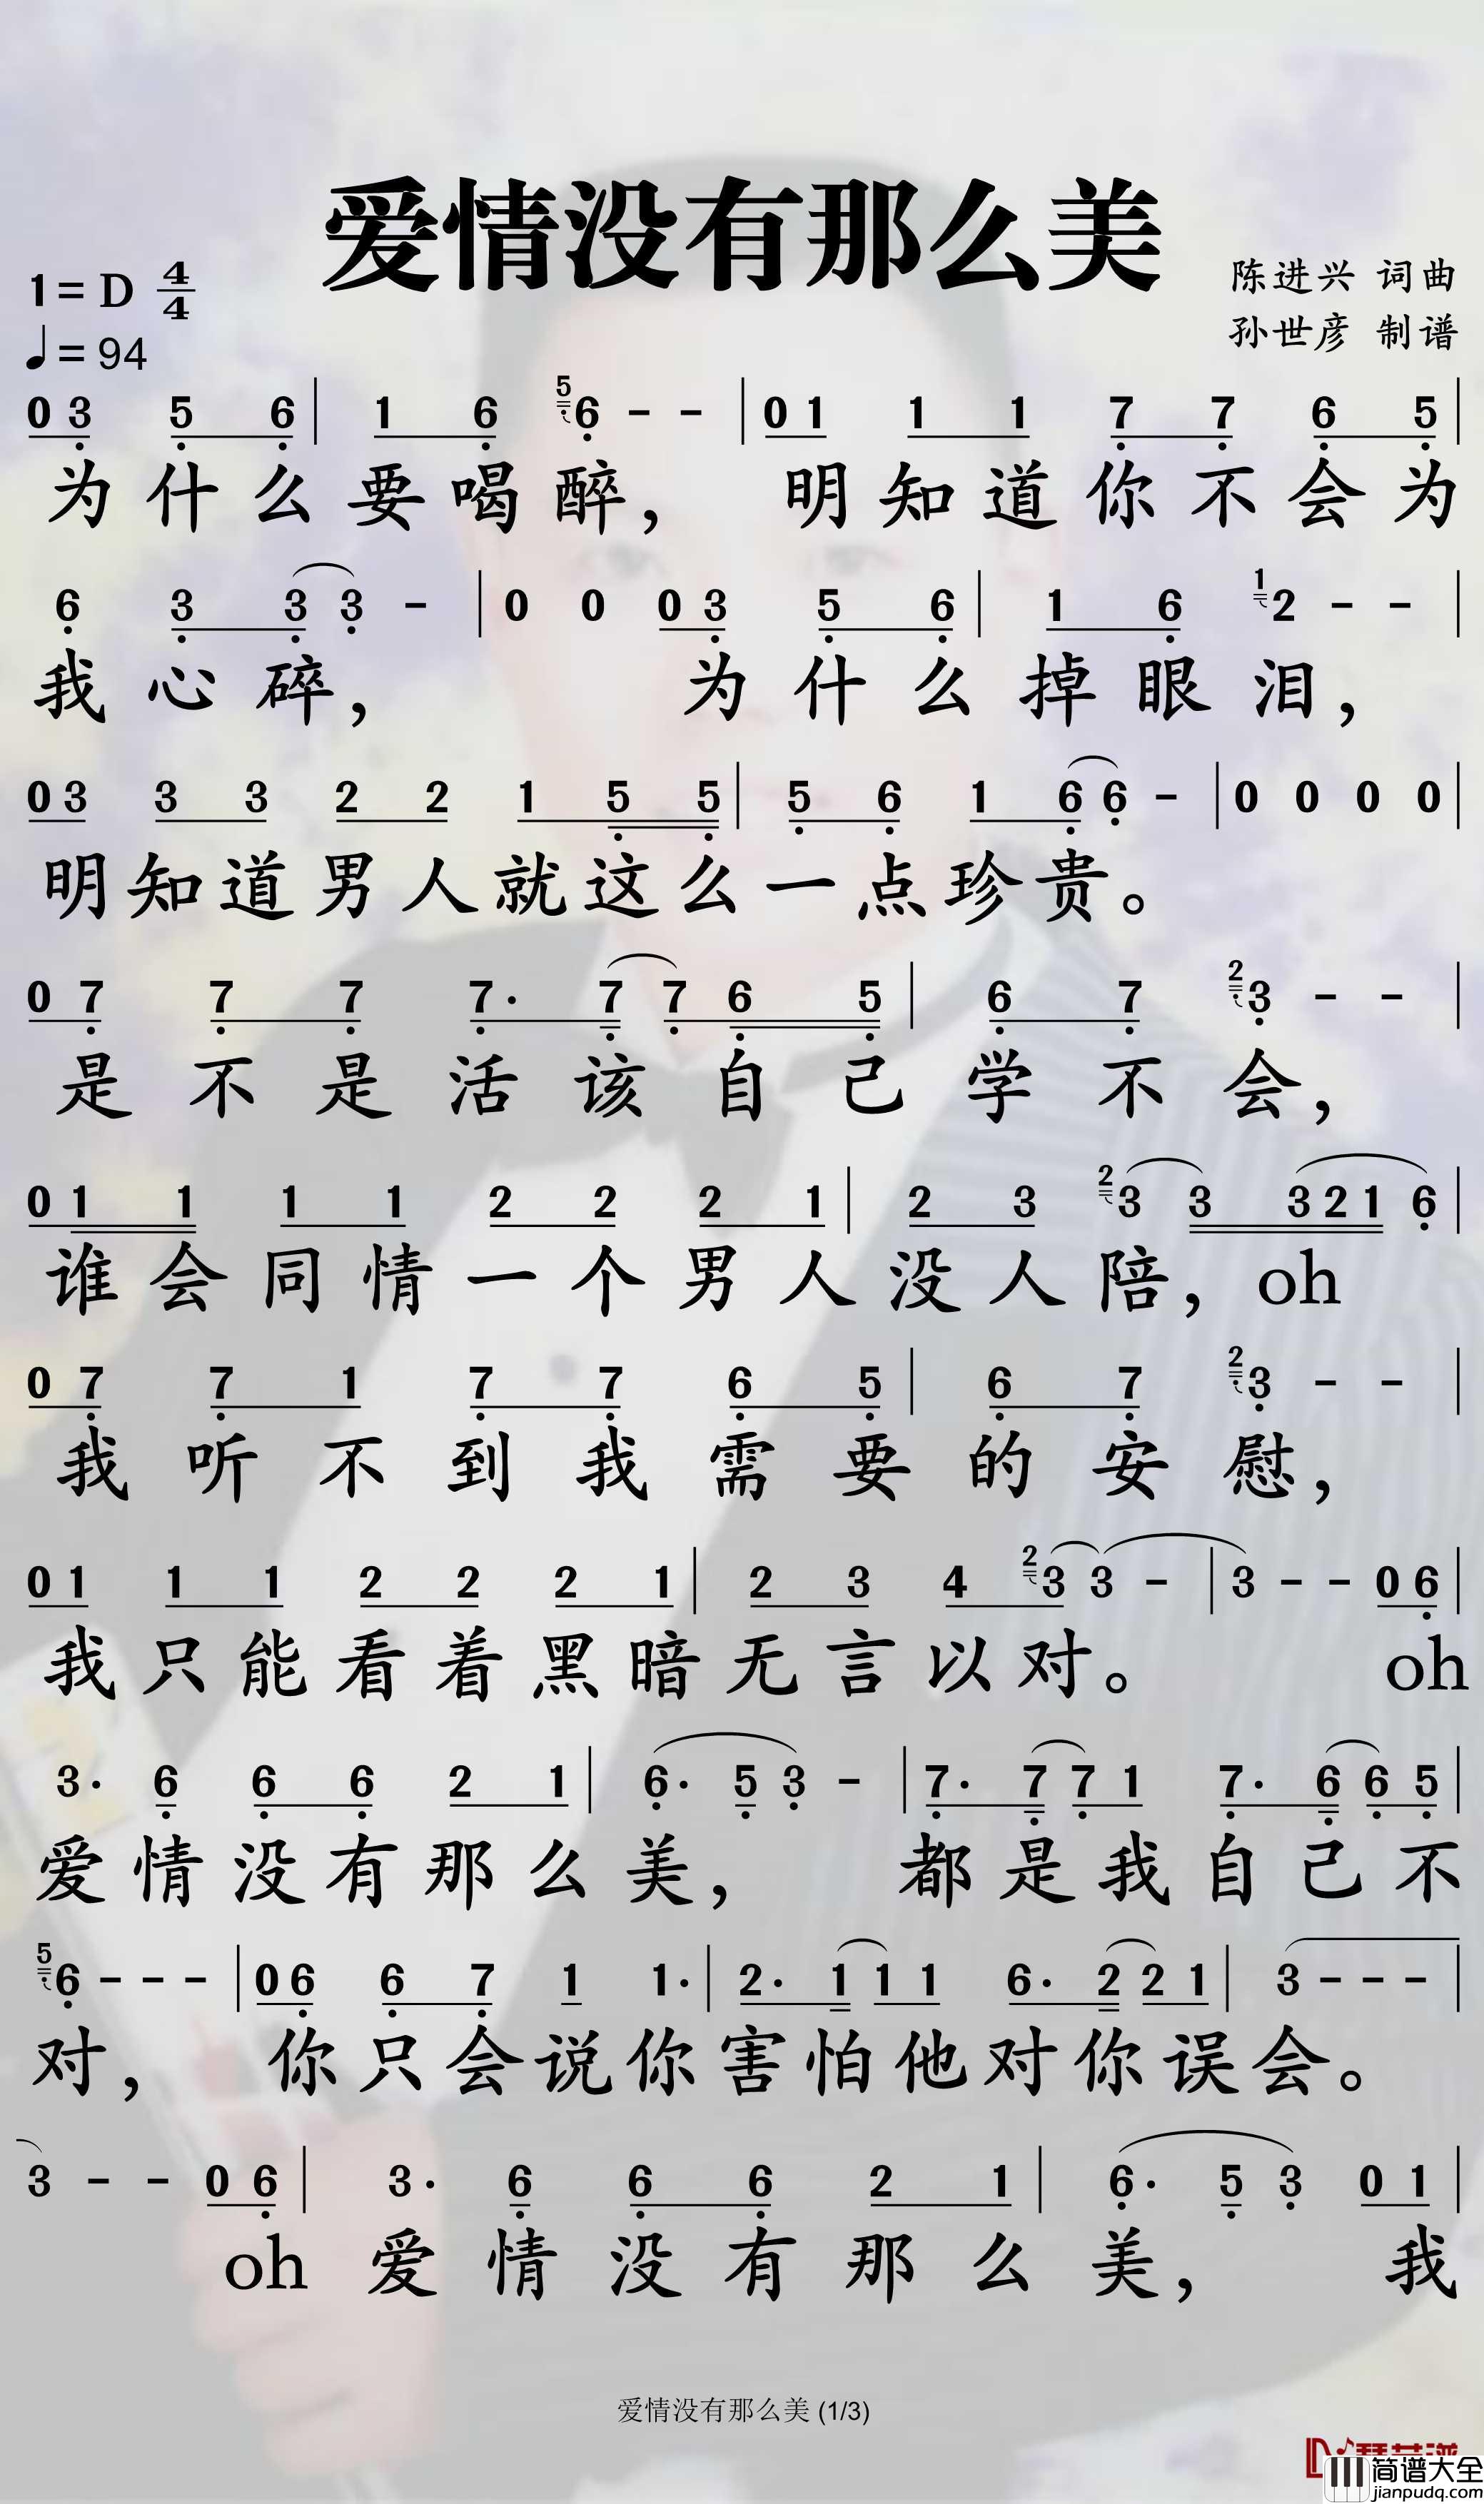 爱情没有那么美
1= D 4/4
陈进兴 词曲
♩= 94
孙世彦 制谱
0 3 5 6 | 1 6 5 6 - - | 0 1 1 1 7 7 6 5 |
为什么要喝醉， 明知道你不会为
6 3 3 3 - | 0 0 0 3 5 6 | 1 6 1 2 - - |
我心碎， 为什么掉眼泪，
0 3 3 3 2 2 1 5 5 | 5 6 1 6 6 - | 0 0 0 0 |
明知道男人就这么一点珍贵。
0 7 7 7 7· 7 7 6 5 | 6 7 2 3 - - |
是不是活该自己学不会，
0 1 1 1 1 2 2 2 1 | 2 3 2 3 3 3 2 1 6 |
谁会同情一个男人没人陪，oh
0 7 7 1 7 7 6 5 | 6 7 2 3 - - |
我听不到我需要的安慰，
0 1 1 1 2 2 2 1 | 2 3 4 2 3 3 - | 3 - - 0 6 |
我只能看着黑暗无言以对。 oh
3· 6 6 6 2 1 | 6· 5 3 - | 7· 7 7 1 7· 6 6 5 |
爱情没有那么美， 都是我自己不
5 6 - - - | 0 6 6 7 1 1· | 2· 1 1 1 6· 2 2 1 | 3 - - - |
对， 你只会说你害怕他对你误会。
3 - - 0 6 | 3· 6 6 6 2 1 | 6· 5 3 0 1 |
oh 爱情没有那么美， 我
爱情没有那么美 (1/3)
简谱大全
jianpudq.com